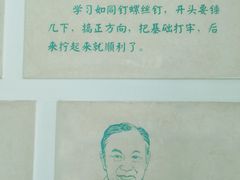 学习如同钉螺丝钉，开头要锤
几下，搞正方向，把基础打牢，后
来拧起来就顺利了。